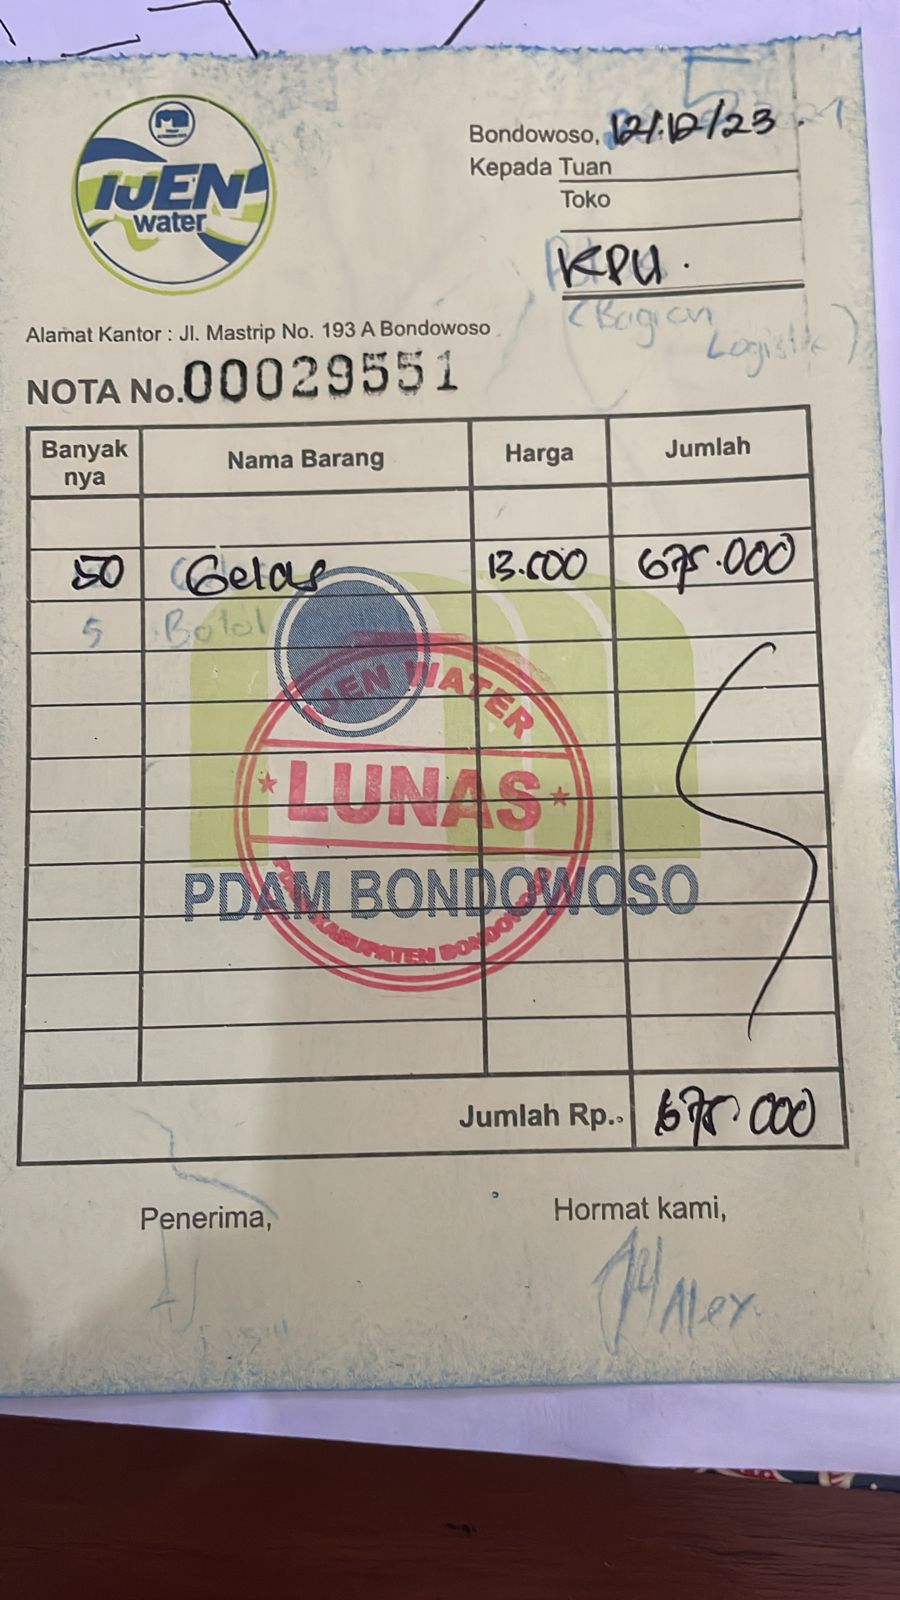 IJEN
water
Bondowoso, 12/12/23
Kepada Tuan
Toko
KPU.
(Bagian
Logistik)
Alamat Kantor : Jl. Mastrip No. 193 A Bondowoso
NOTA No.00029551
Banyak nya Nama Barang Harga Jumlah
50 Gelas 13.500 675.000
5 Botol
IJEN WATER
LUNAS
PDAM BONDOWOSO
KABUPATEN BONDOWOSO
Jumlah Rp.. 675.000
Penerima,
Hormat kami,
Alex.